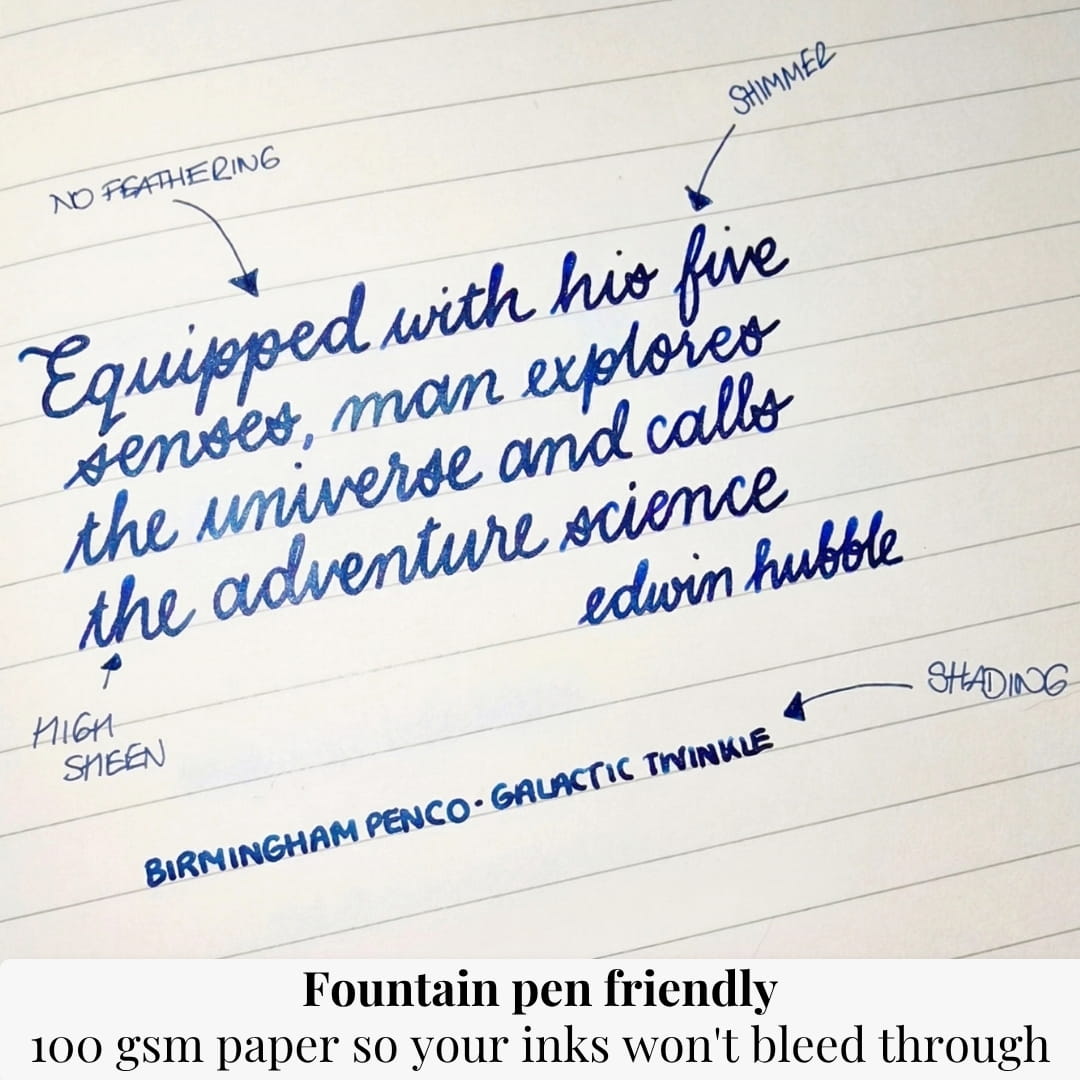 SHIMMER
NO FEATHERING
Equipped with his five
senses, man explores
the universe and calls
the adventure science
edwin hubble
SHADING
HIGH
SHEEN
BIRMINGHAM PENCO · GALACTIC TWINKLE
Fountain pen friendly
100 gsm paper so your inks won't bleed through